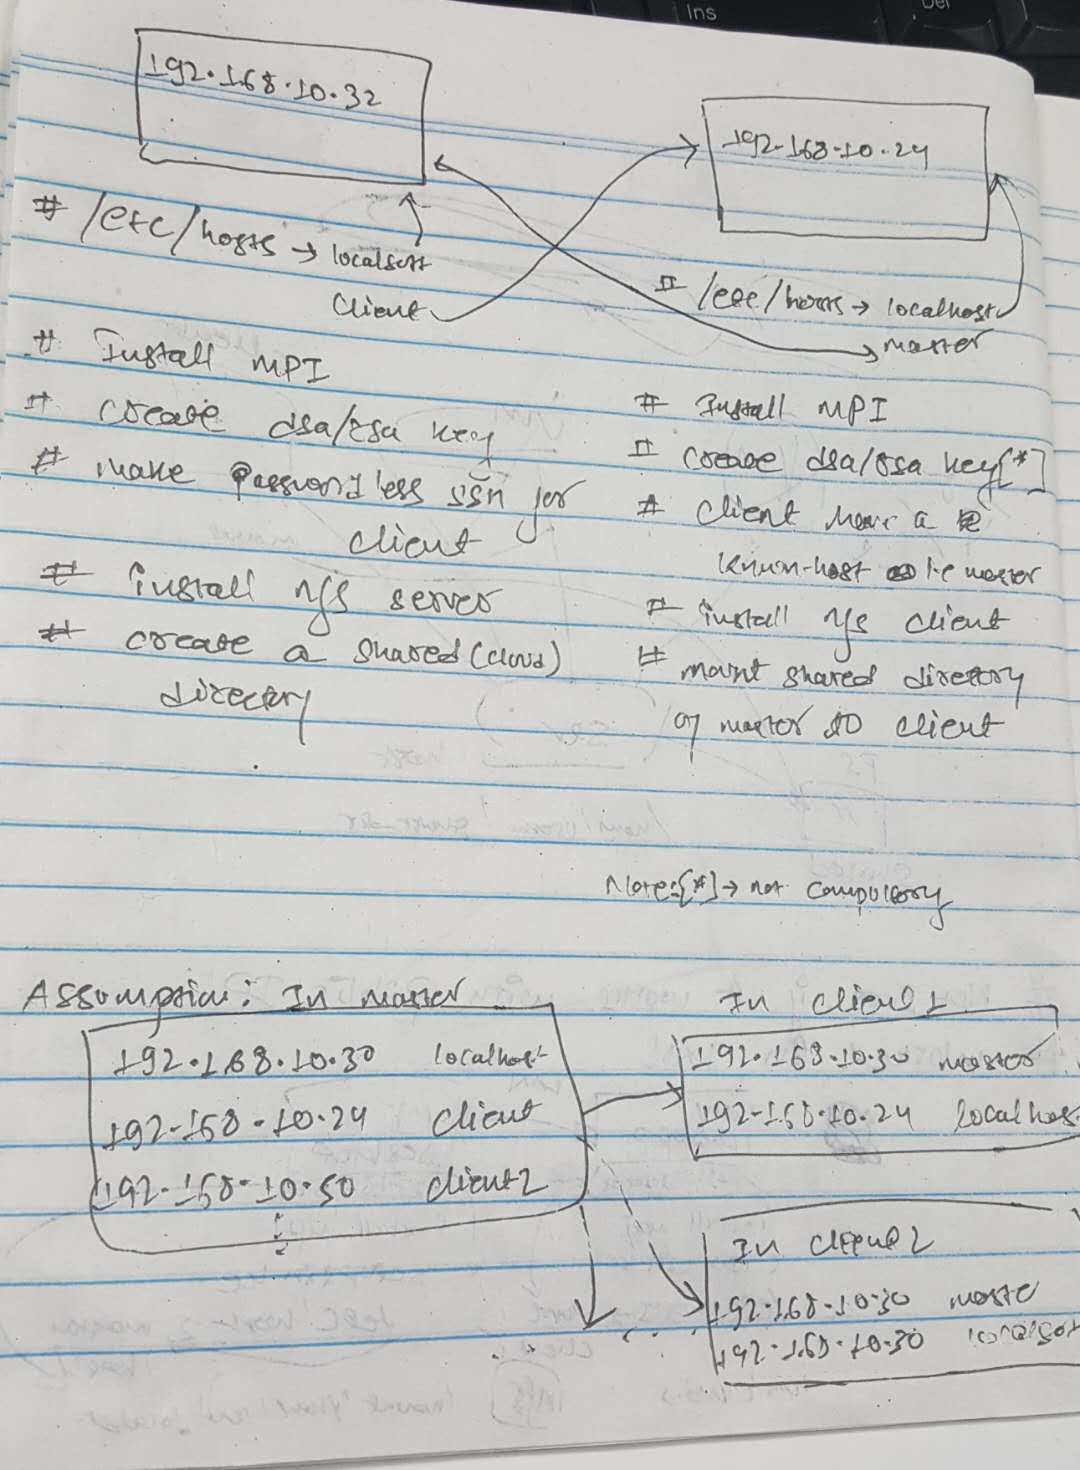 Ins
Del
192.168.10.32
# /etc/hosts → localhost
Client
# Install MPI
# Create dsa/rsa key
# make Passwordless ssh for
client
# install nfs server
# create a shared (cloud)
directory
192.168.10.24
# /etc/hosts → localhost
→ master
# Install MPI
# Create dsa/rsa key[*]
# Client have a
known-host as master
# install nfs client
# mount shared directory
of master to client
Note:[*] → not compulsory
Assumption: In master
192.168.10.30 localhost
192.168.10.24 client
192.168.10.50 client2
In client 1
192.168.10.30 master
192.168.10.24 localhos
In client 2
192.168.10.30 maste
192.168.10.30